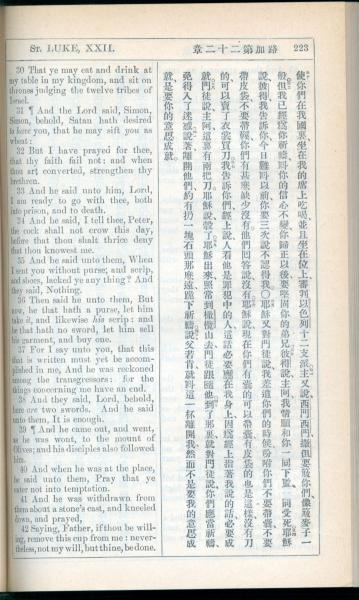 St. LUKE, XXII.
30 That ye may eat and drink at
my table in my kingdom, and sit on
thrones judging the twelve tribes of
Israel.
31 ¶ And the Lord said, Simon,
Simon, behold, Satan hath desired
to have you, that he may sift you as
wheat:
32 But I have prayed for thee,
that thy faith fail not: and when
thou art converted, strengthen thy
brethren.
33 And he said unto him, Lord,
I am ready to go with thee, both
into prison, and to death.
34 And he said, I tell thee, Peter,
the cock shall not crow this day,
before that thou shalt thrice deny
that thou knowest me.
35 And he said unto them, When
I sent you without purse, and scrip,
and shoes, lacked ye any thing? And
they said, Nothing.
36 Then said he unto them, But
now, he that hath a purse, let him
take it, and likewise his scrip: and
he that hath no sword, let him sell
his garment, and buy one.
37 For I say unto you, that this
that is written must yet be accom-
plished in me, And he was reckoned
among the transgressors: for the
things concerning me have an end.
38 And they said, Lord, behold,
here are two swords. And he said
unto them, It is enough.
39 ¶ And he came out, and went,
as he was wont, to the mount of
Olives; and his disciples also followed
him.
40 And when he was at the place,
he said unto them, Pray that ye
enter not into temptation.
41 And he was withdrawn from
them about a stone's cast, and kneeled
down, and prayed,
42 Saying, Father, if thou be will-
ing, remove this cup from me: never-
theless, not my will, but thine, be done.
路加第二十二章
223
使你們在我國裏坐在我的席上吃喝並且坐在位上審判以色列十二支派○主又說西門西門撒但要得你們像篩麥子一
般但我已經爲你祈禱叫你的信心不變你歸正以後要堅固你的弟兄彼得說主阿我情願和你一同下監一同受死耶穌
說彼得我告訴你今日雞叫以前你要三次說不認得我○耶穌又對門徒說我差遣你們的時候吩咐你們不要帶囊不要
帶皮袋不要帶鞋你們有甚麼缺少沒有他們回答說沒有耶穌說現在你們有囊的可以帶着有皮袋的也是這樣沒有刀
的可以賣了衣裳買刀我告訴你們經上說人看他是罪犯中的人這話必要應在我身上因爲經上指著我說的話必要成
就門徒說主阿這裏有兩把刀耶穌說彀了○耶穌出來照常到橄欖山去門徒跟隨他到了那裏就對門徒說你們應當祈禱
免得入了迷惑說著離開他們約有扔一塊石頭那麼遠跪下祈禱說父若肯就叫這一杯離開我然而不是要我的意思成
就是要你的意思成就